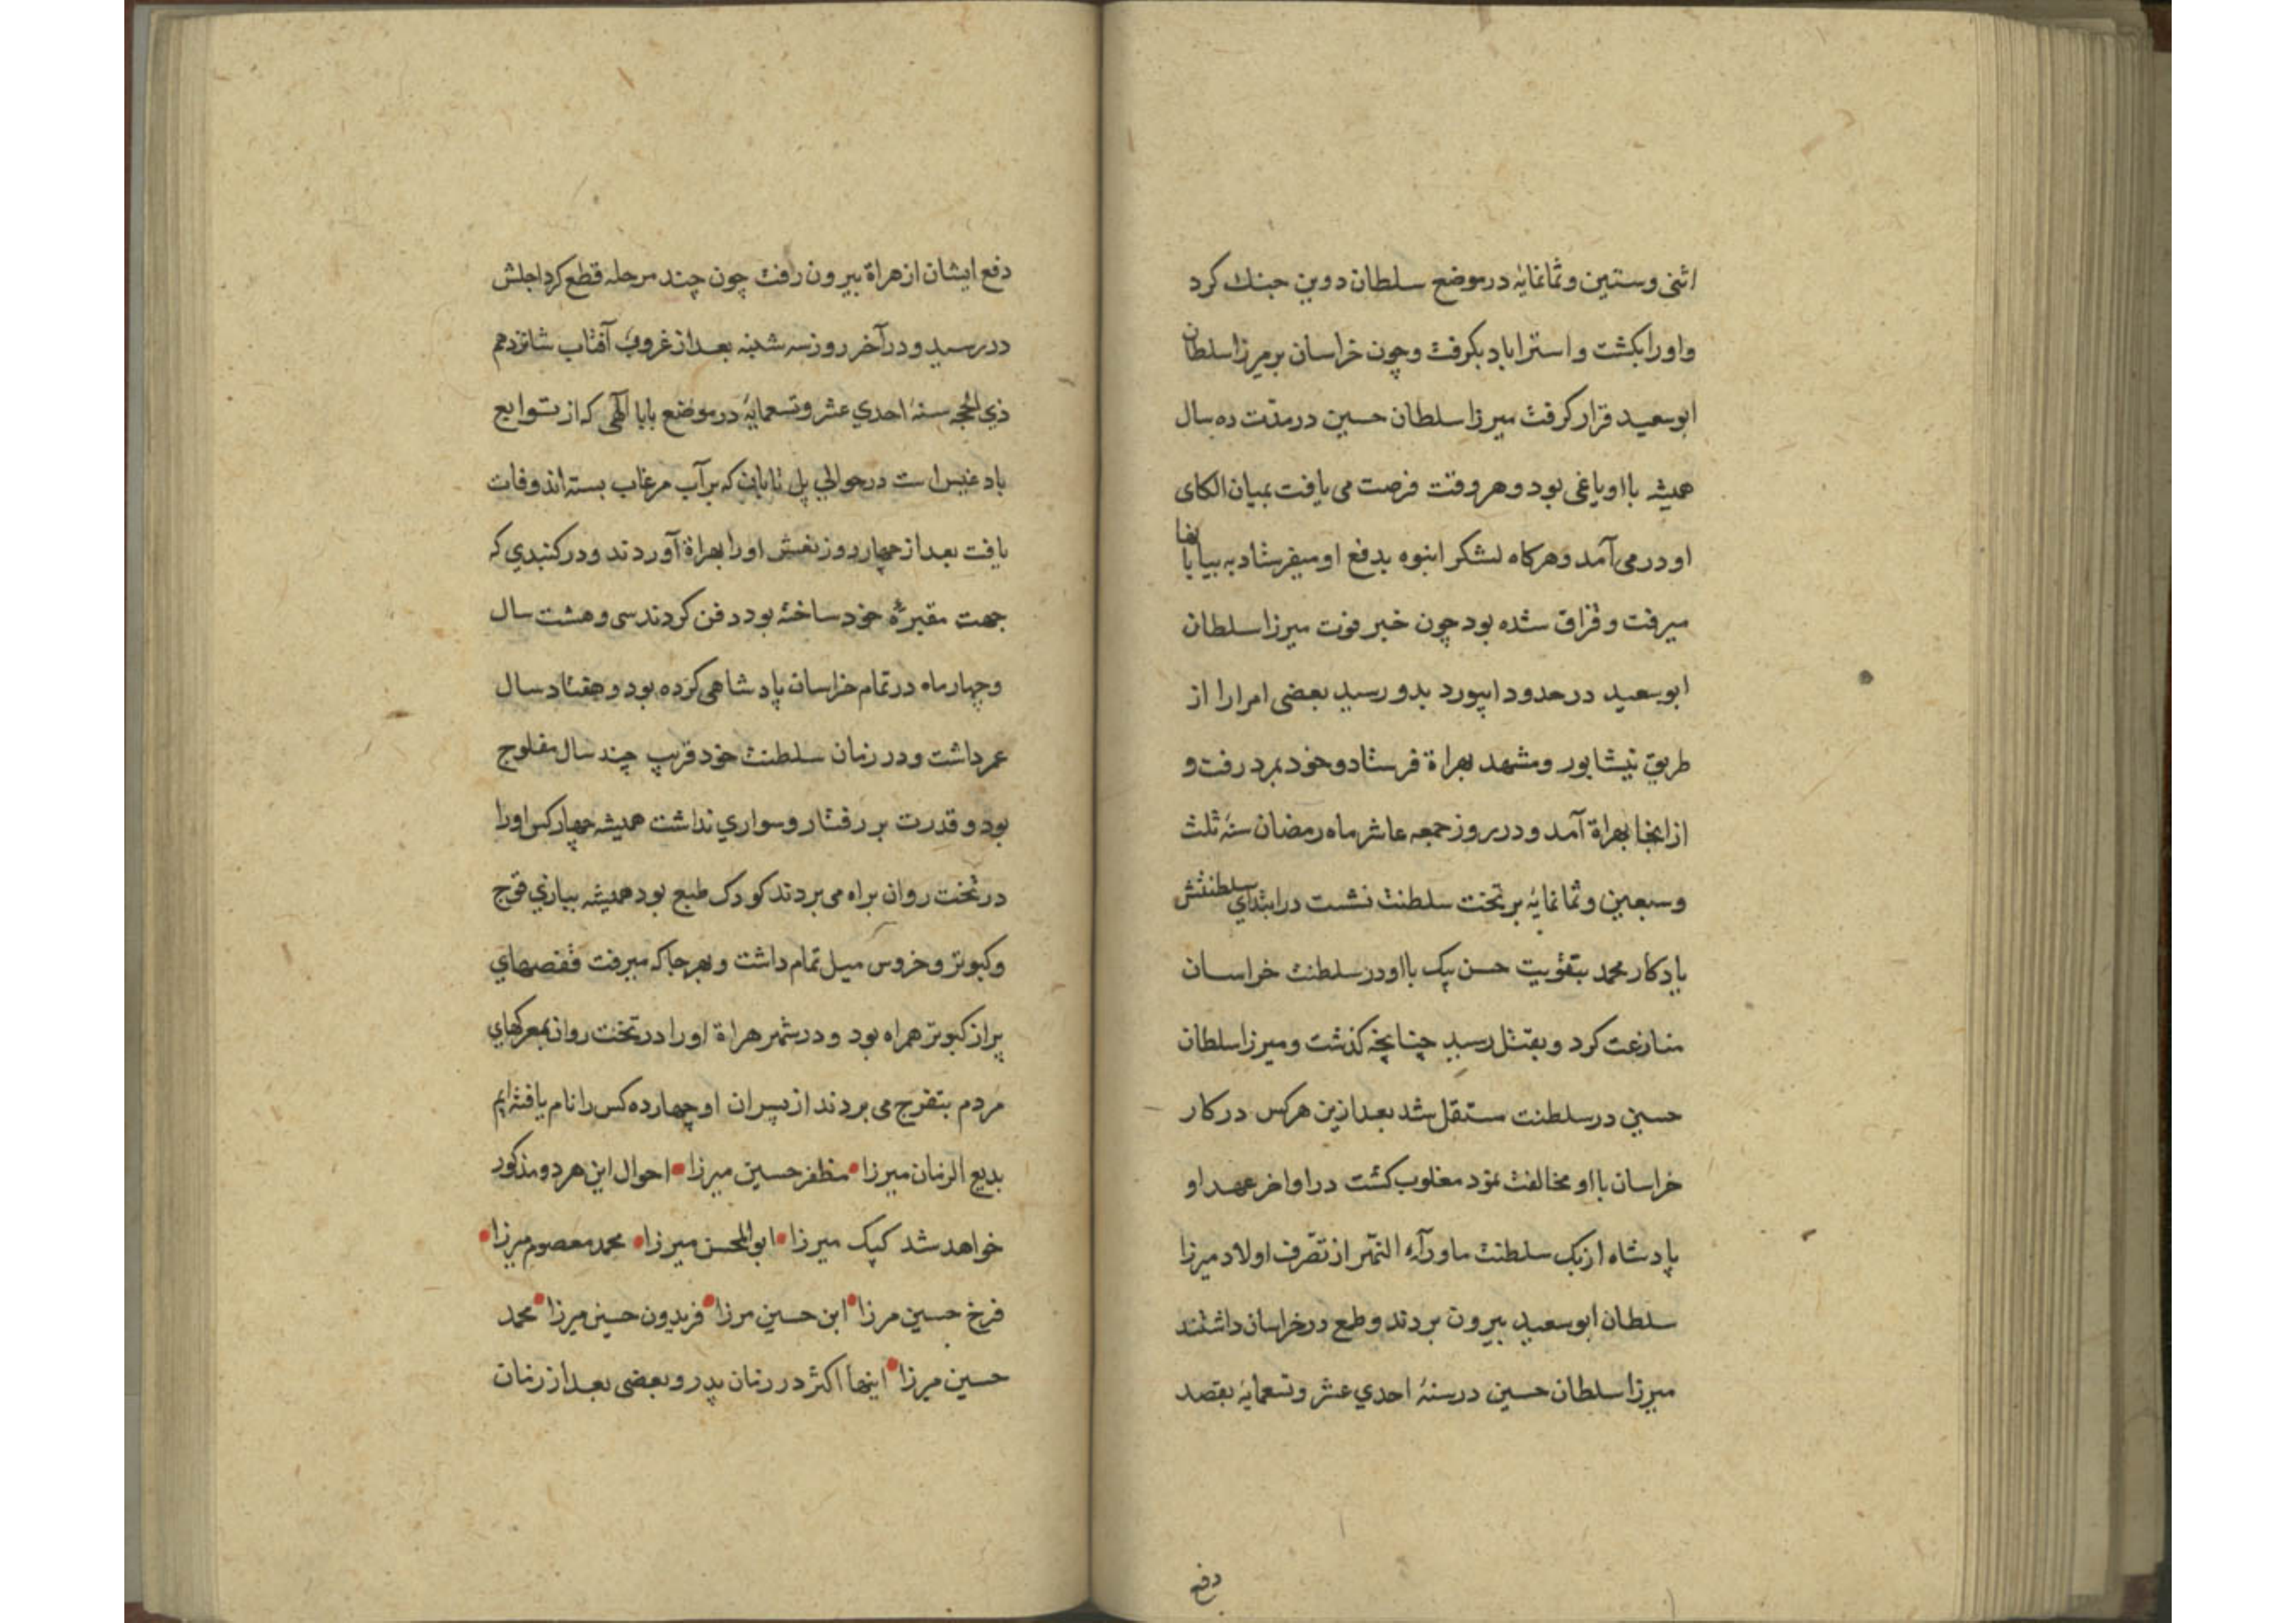 اثنی وستین وثمانمایه درموضع سلطان دوین جنك كرد
واورابكشت واستراباد بكرفت وچون خراسان برمیرزاسلطان
ابوسعید قرار كرفت میرزا سلطان حسین درمدت ده سال
همیشه بااو یاغی بود وهروقت فرصت می یافت بمیان الكای
او درمی آمد وهركاه لشكر انبوه بدفع او میفرستاد به بیابانها
میرفت وقزاق شده بود چون خبر فوت میرزا سلطان
ابوسعید درحدود ابیورد بدو رسید بعضی امرا را از
طریق نیشابور ومشهد بهراة فرستاد وخود بمرد رفت و
ازانجا بهراة آمد ودرروز جمعه عاشر ماه رمضان سنهٔ ثلث
وسبعین وثمانمایه برتخت سلطنت نشست درابتدای سلطنتش
یادكار محمد بتقویت حسن بیك بااودر سلطنت خراسان
منازعت كرد وبقتل رسید چنانچه كذشت ومیرزا سلطان
حسین درسلطنت مستقل شد بعدازین هركس دركار
خراسان بااو مخالفت نمود مغلوب كشت دراواخر عهد او
پادشاه ازبك سلطنت ماورآء النهر از تصرف اولاد میرزا
سلطان ابوسعید بیرون بردند وطمع درخراسان داشتند
میرزا سلطان حسین درسنهٔ احدی عشر وتسعمایهٔ بقصد
دفع
دفع ایشان ازهراة بیرون رفت چون چند مرحله قطع كرد اجلش
دررسید ودرآخر روز سه شنبه بعداز غروب آفتاب شانزدهم
ذی الحجه سنهٔ احدی عشر وتسعمایهٔ درموضع بابا الهی كه از توابع
بادغیس است درحوالی پل تابان كه برآب مرغاب بسته اند وفات
یافت بعداز چهار روز نعش اورا بهراة آوردند ودر كنبدی كه
جهت مقبرهٔ خود ساخته بود دفن كردند سی وهشت سال
وچهار ماه درتمام خراسان پادشاهی كرده بود وهفتاد سال
عمر داشت ودر زمان سلطنت خود قریب چند سال مفلوج
بود وقدرت بر رفتار وسواری نداشت همیشه چهار كس اورا
درتخت روان براه می بردند كودك طبع بود همیشه ببازی قوج
وكبوتر وخروس میل تمام داشت وبهرجا كه میرفت قفصهای
پراز كبوتر همراه بود ودرشهر هراة اورا درتخت روان بمعركهای
مردم بتفرج می بردند از پسران اوچهارده كس را نام یافته ایم
بدیع الزمان میرزا • مظفر حسین میرزا • احوال این هردو مذكور
خواهد شد كپك میرزا • ابوالمحسن میرزا • محمد معصوم میرزا •
فرخ حسین مرزا • ابن حسین مرزا • فریدون حسین میرزا • محمد
حسین مرزا • اینها اكثر در زمان پدر وبعضی بعداز زمان